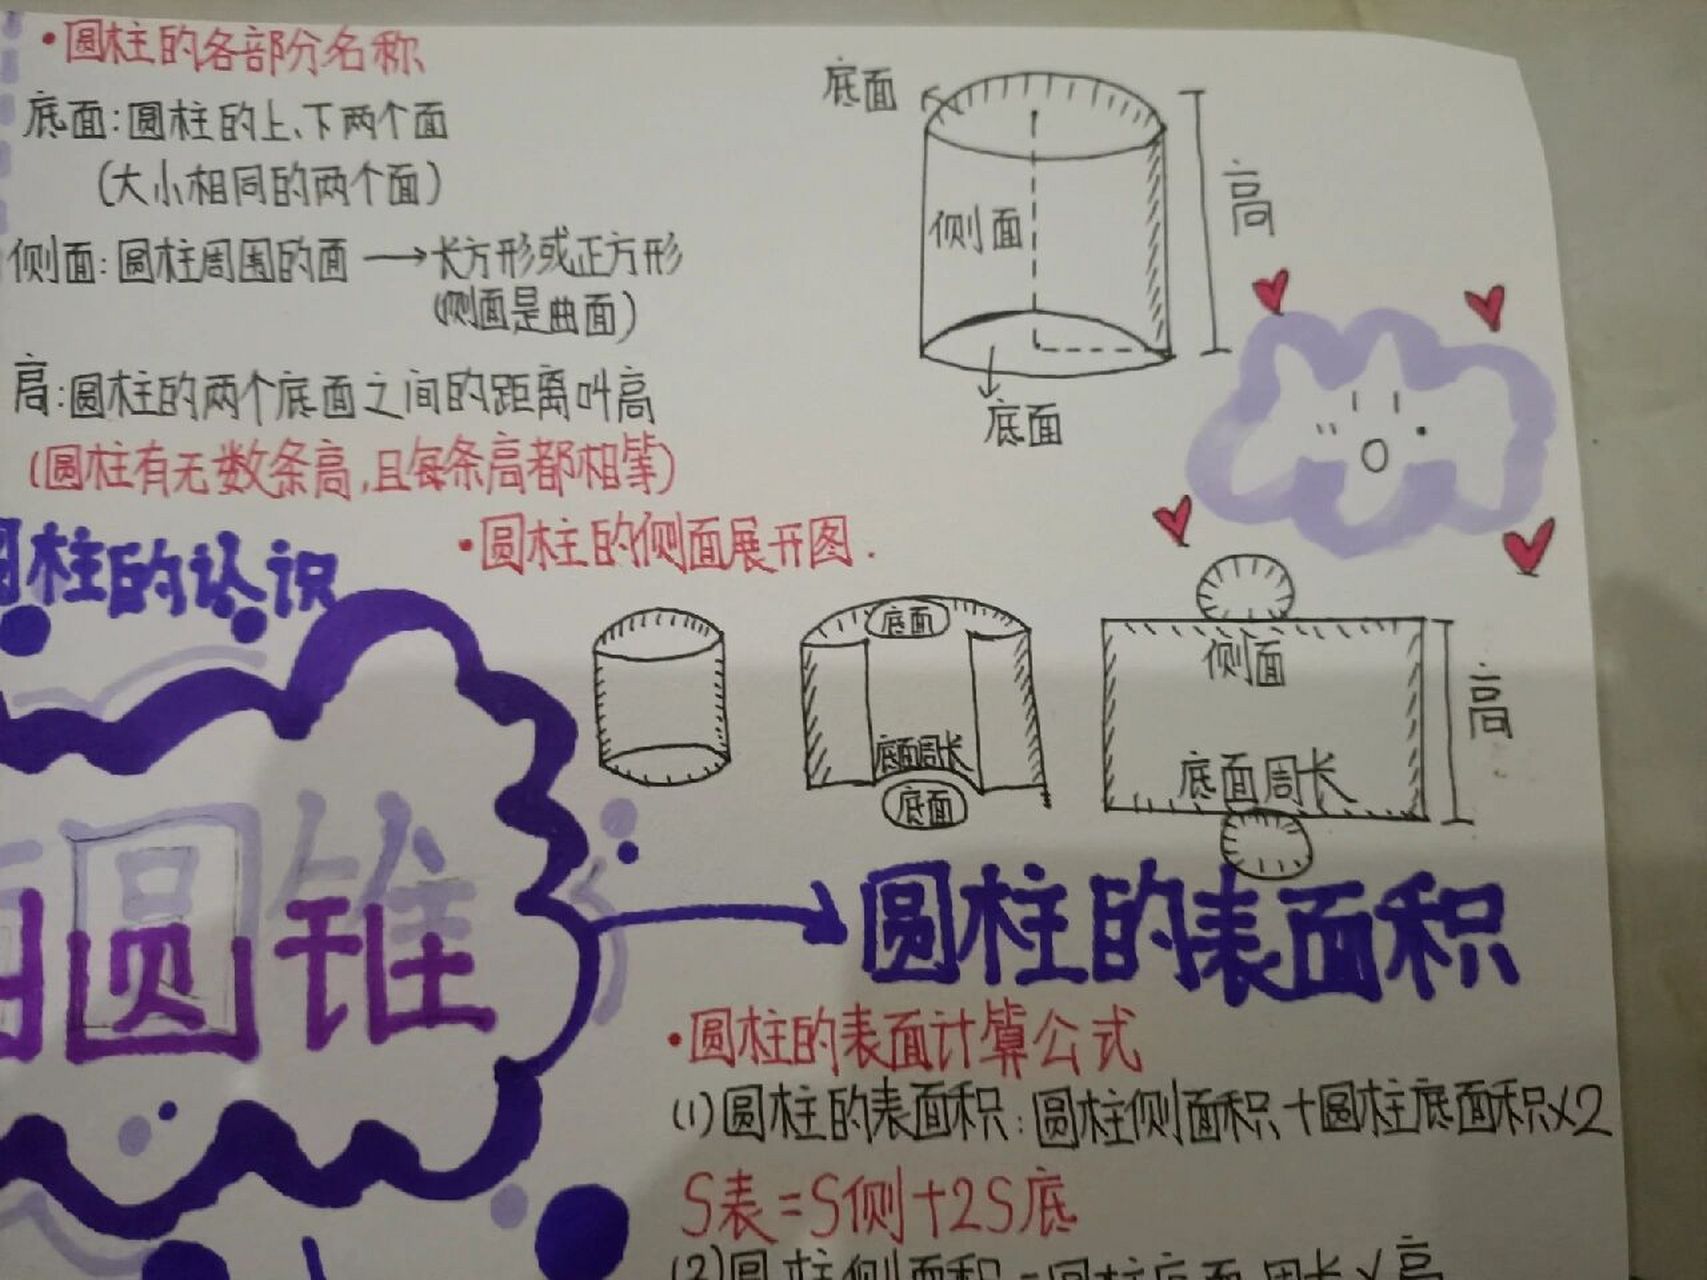 ·圆柱的各部分名称
底面:圆柱的上、下两个面
(大小相同的两个面)
侧面:圆柱周围的面→长方形或正方形
(侧面是曲面)
高:圆柱的两个底面之间的距离叫高
(圆柱有无数条高,且每条高都相等)
底面
侧面
高
底面
圆柱的认识
·圆柱的侧面展开图.
底面
底面周长
底面
侧面
底面周长
高
圆锥
圆柱的表面积
·圆柱的表面计算公式
(1)圆柱的表面积:圆柱侧面积+圆柱底面积×2
S表=S侧+2S底
(2)圆柱侧面积=圆柱底面周长×高